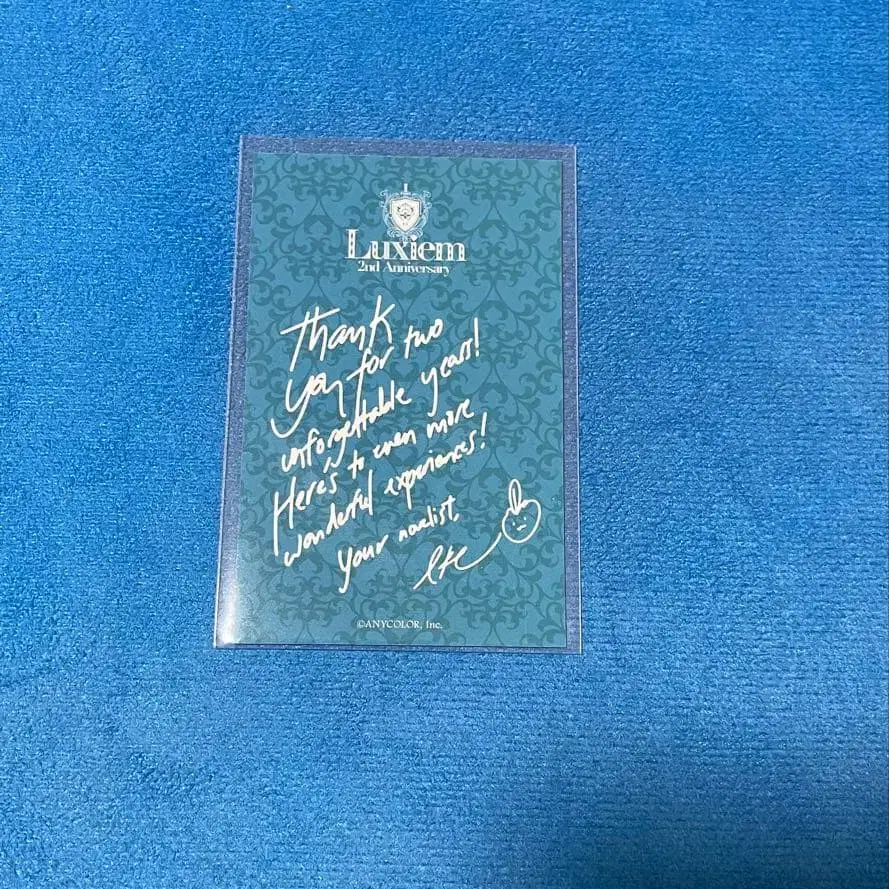 Luxiem
2nd Anniversary
Thank
you for two
unforgettable years!
Here's to even more
wonderful experiences!
Your novelist,
©ANYCOLOR, Inc.